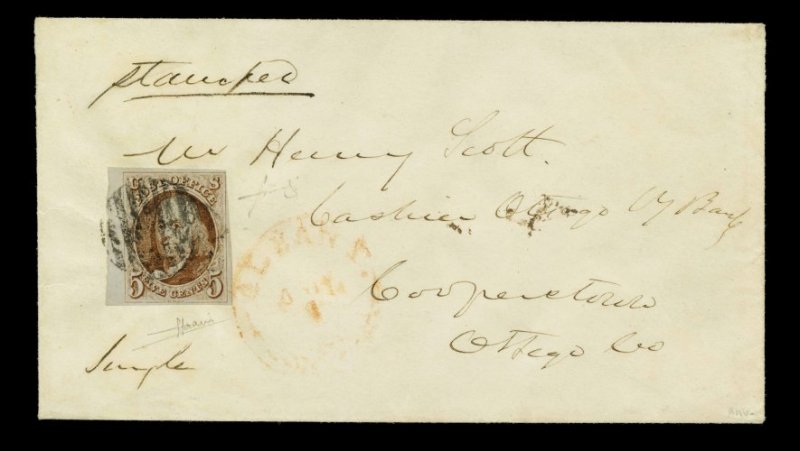 stamped
Mr Henry Scott.
U S
POST OFFICE
Cashier Otsego Cy Bank
ALBANY
5 FIVE CENTS 5
Cooperstown
Otsego Co
Single